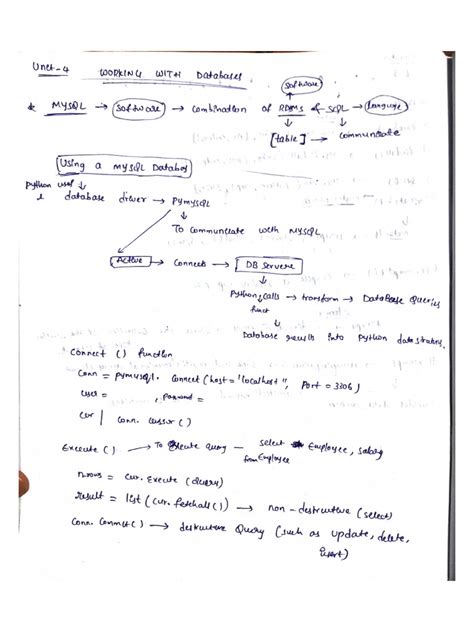 Unit-4 WORKING WITH Databases
software
* MYSQL → software → combination of RDBMS & SQL → language
[table] → communicate
Using a MYSQL Databases
python used
database driver → pymysql
To communicate with MYSQL
Active → connects → DB Servere
Python calls → transform → Database Queries
funct
Database results into python data structures.
connect () function
conn = pymysql. connect (host = "localhost", Port = 3306)
user = , password =
cur | conn. cursor ()
Execute () → To Execute query — select Employee, salary
from Employee
nrows = cur. execute (query)
result = list (cur. fetchall ()) → non-destructive (select)
conn. commit () → destructive Query (such as update, delete,
insert)